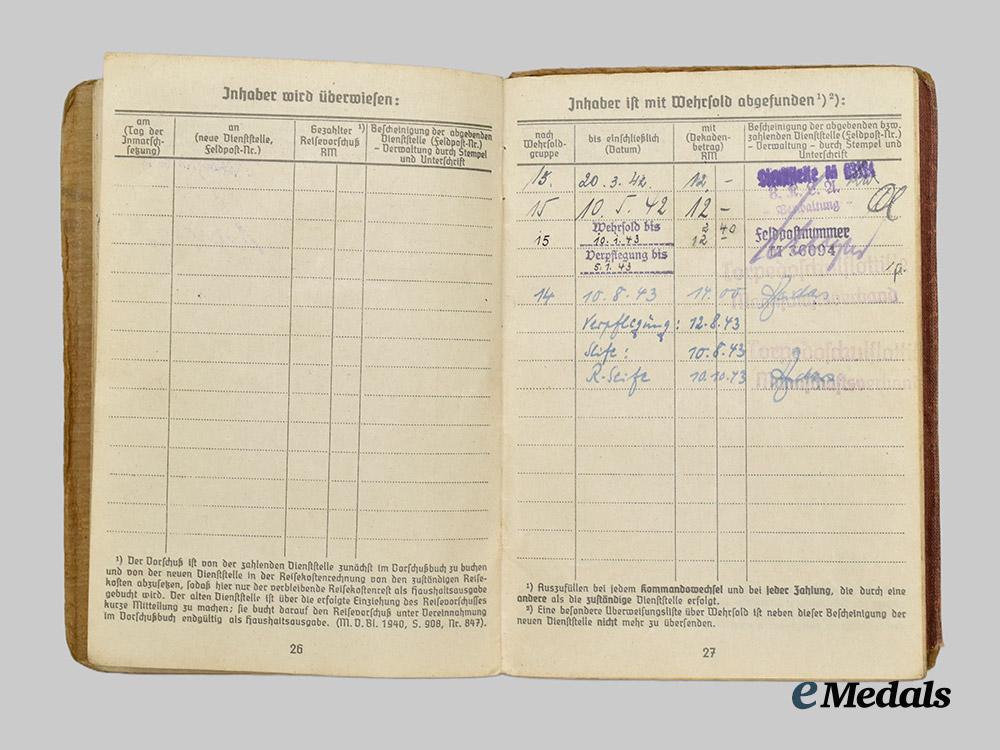 Inhaber wird überwiesen:
am
(Tag der
Inmarsch-
setzung)
an
(neue Dienststelle,
Feldpost-Nr.)
Gezahlter ¹)
Reisevorschuß
RM
Bescheinigung der abgebenden
Dienststelle (Feldpost-Nr.)
- Verwaltung - durch Stempel
und Unterschrift
¹) Der Vorschuß ist von der zahlenden Dienststelle zunächst im Vorschußbuch zu buchen
und von der neuen Dienststelle in der Reisekostenrechnung von den zuständigen Reise-
kosten abzusetzen, sodaß hier nur der verbleibende Reisekostenrest als Haushaltsausgabe
gebucht wird. Der alten Dienststelle ist über die erfolgte Einziehung des Reisevorschusses
kurze Mitteilung zu machen; sie bucht darauf den Reisevorschuß unter Vereinnahmung
im Vorschußbuch endgültig als Haushaltsausgabe. (M. D. Bl. 1940, S. 908, Nr. 847).
26
Inhaber ist mit Wehrsold abgefunden ¹) ²):
nach
Wehrsold-
gruppe
bis einschließlich
(Datum)
mit
(Dekaden-
betrag)
RM
Bescheinigung der abgebenden bzw.
zahlenden Dienststelle (Feldpost-Nr.)
- Verwaltung - durch Stempel und
Unterschrift
15. 20.3.42. 12,-
15 10.5.42 12 -
- Verwaltung -
Wehrsold bis
15 10.1.43 12 -
2 40
Feldpostnummer
M 36094
Verpflegung bis
5.1.43
14 10.8.43 14.00
Verpflegung: 12.8.43
Seife: 10.8.43
R-Seife 10.10.43
¹) Auszufüllen bei jedem Kommandowechsel und bei jeder Zahlung, die durch eine
andere als die zuständige Dienststelle erfolgt.
²) Eine besondere Überweisungsliste über Wehrsold ist neben dieser Bescheinigung der
neuen Dienststelle nicht mehr zu übersenden.
27
eMedals